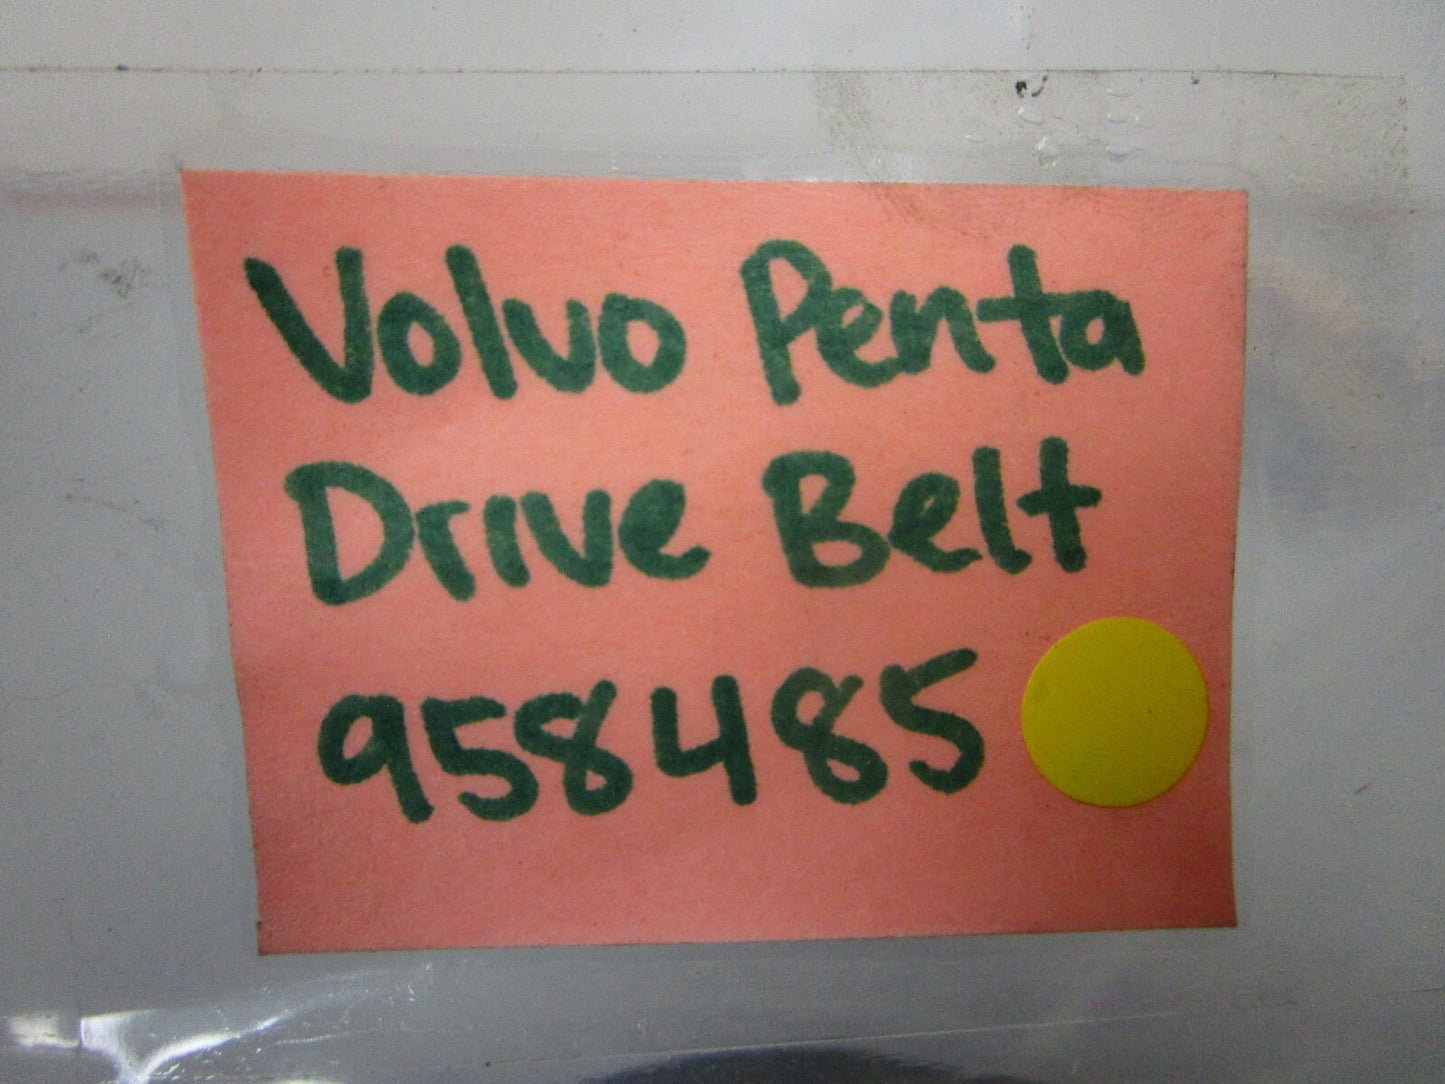 Volvo Penta
Drive Belt
958485